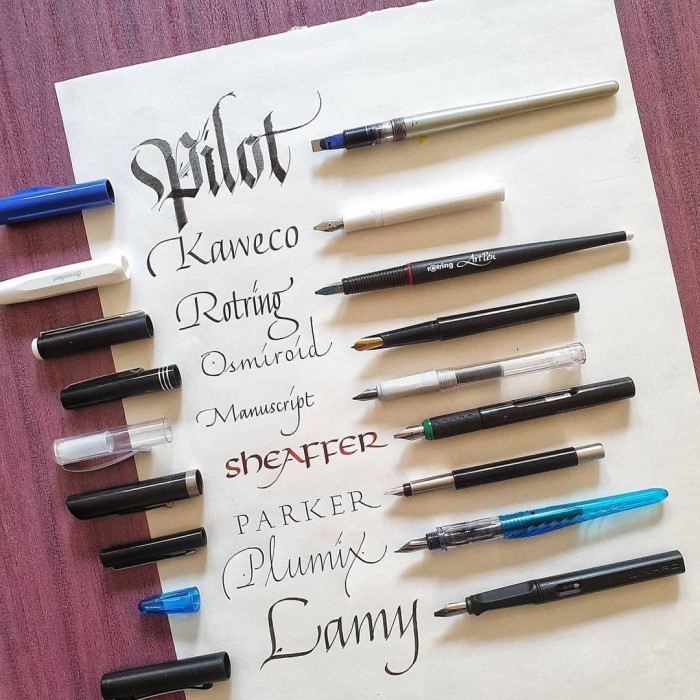 Pilot
Kaweco
Rotring
rotring ArtPen
Osmiroid
Manuscript
SHEAFFER
PARKER
Plumix
Lamy